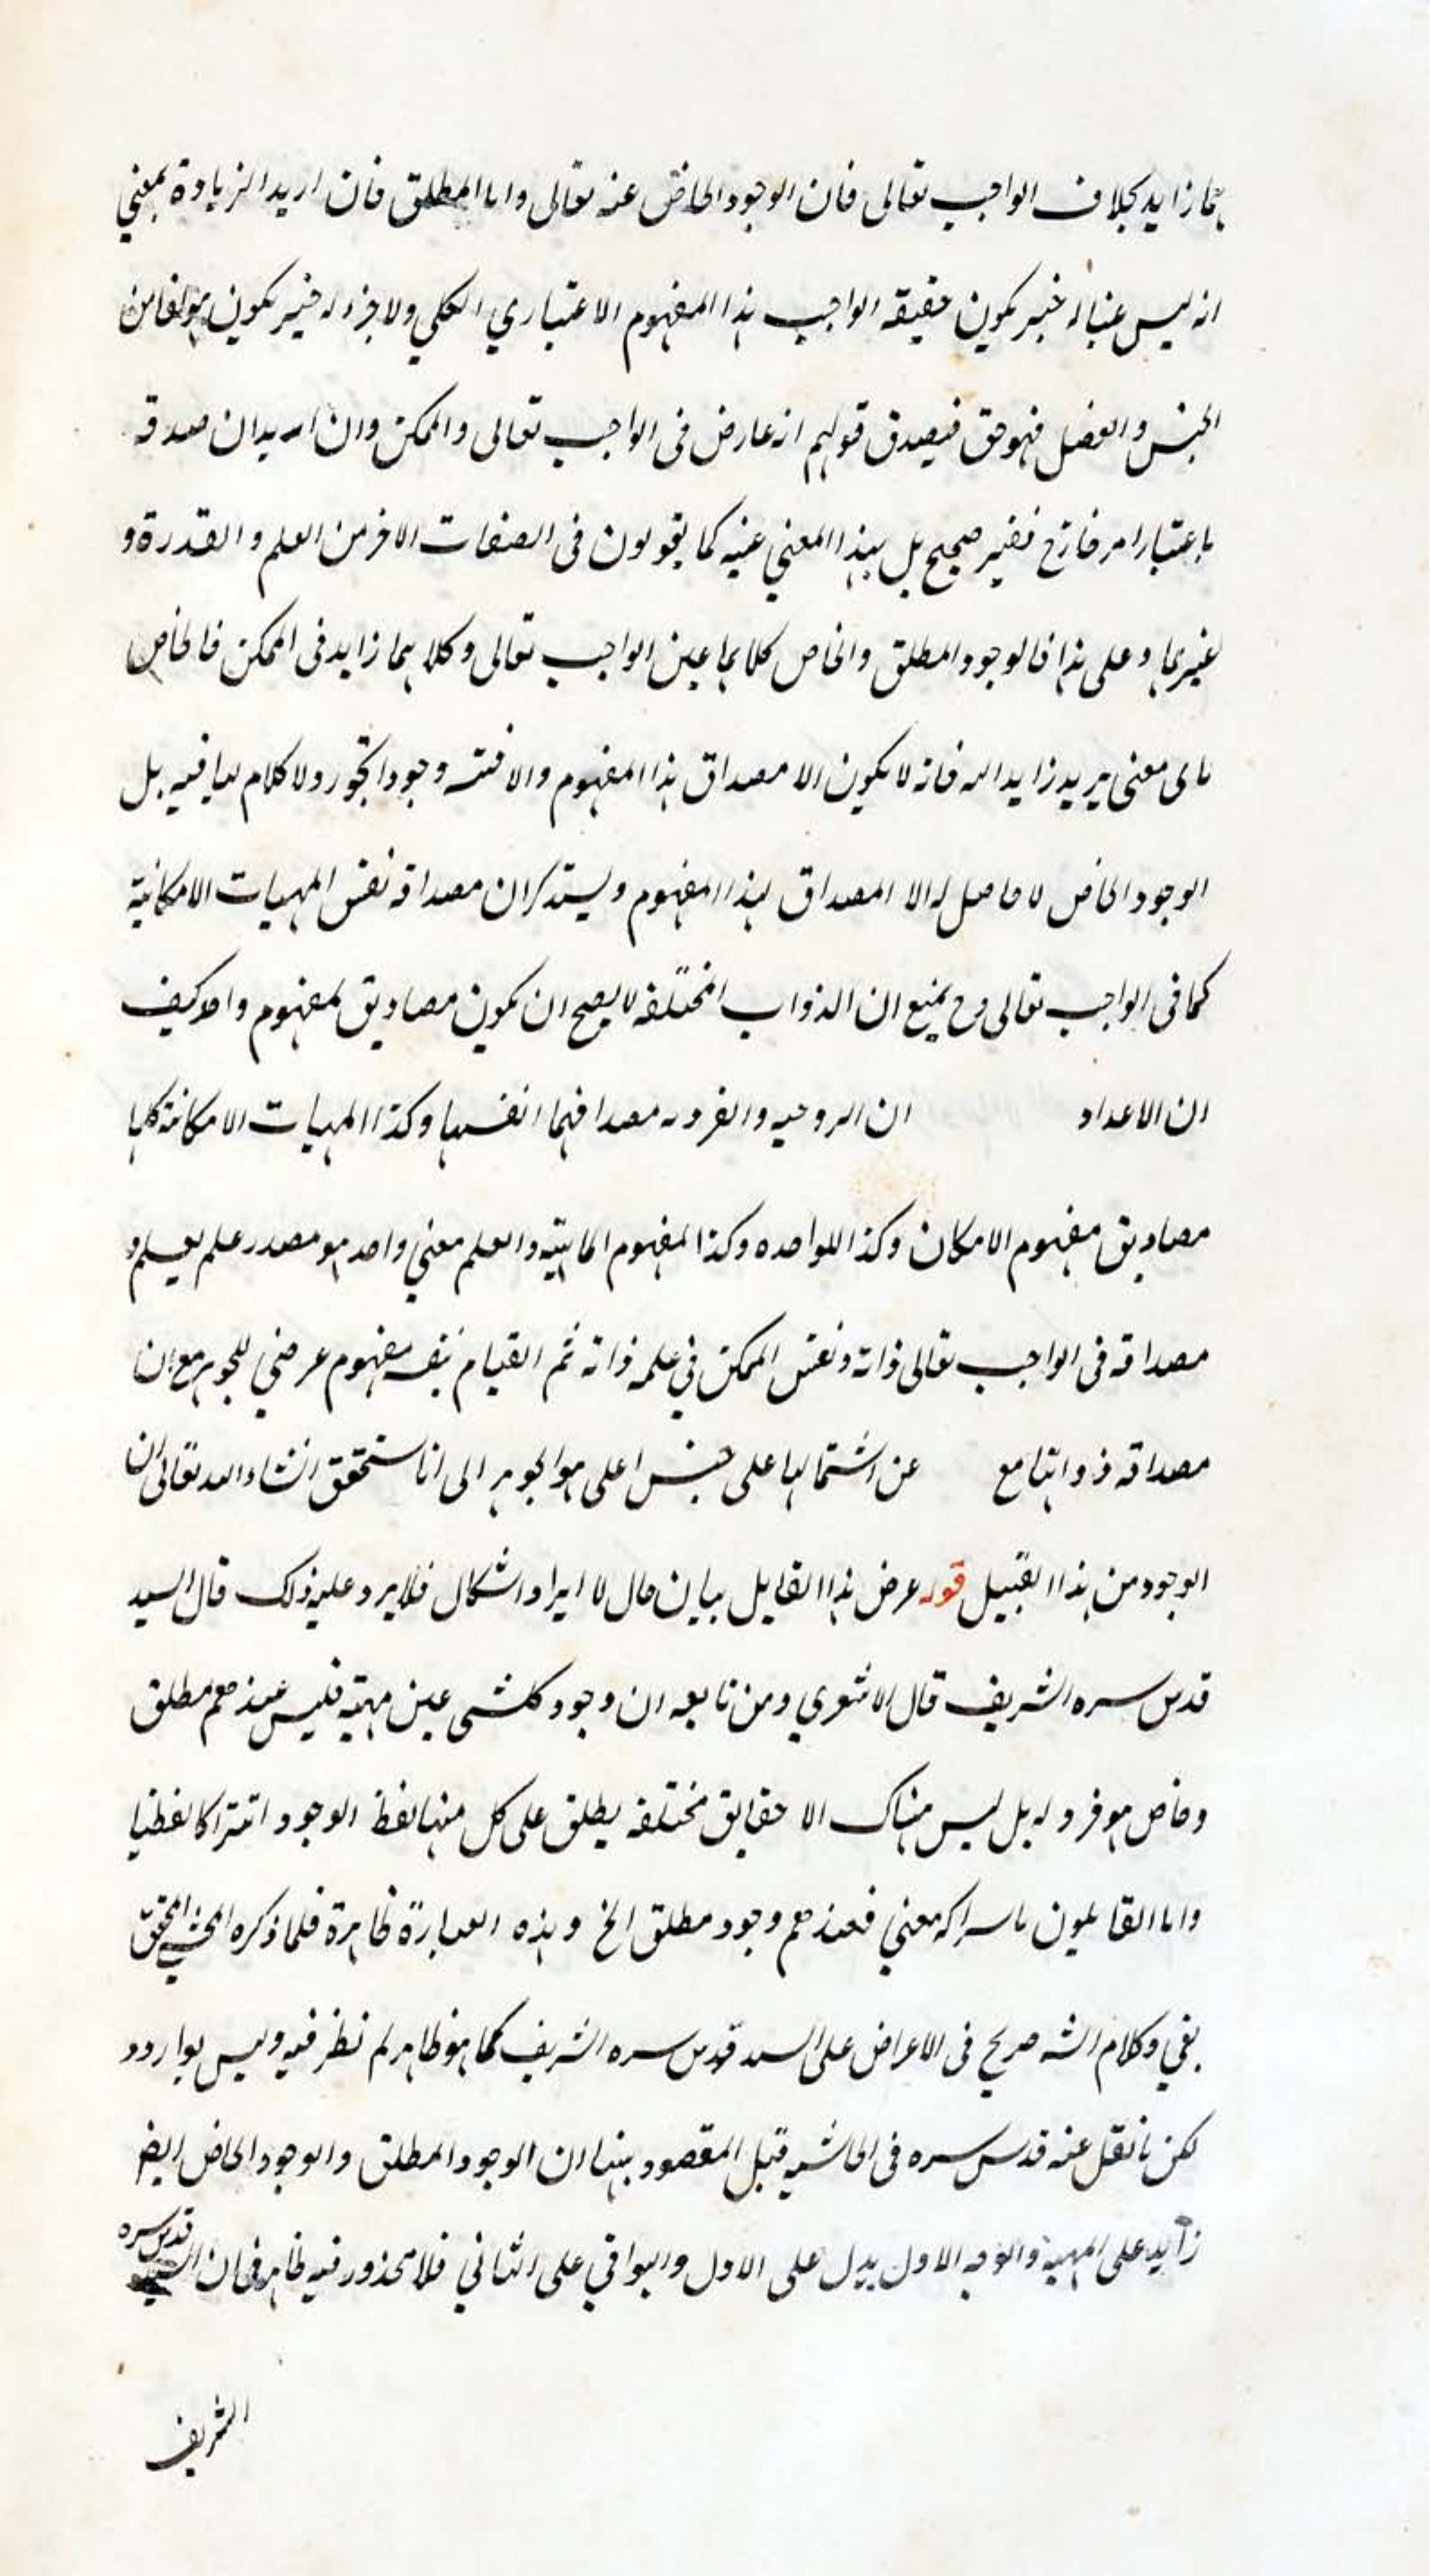 بما زايد بخلاف الواجب تعالى فان الوجود الخاص عنه تعالى واما المطلق فان اريد الزيادة بمعني
انه ليس عينا له خبر يكون حقيقه الواجب هذا المفهوم الاعتباري العكلي ولا جزء له خير يكون مؤلفا من
الجنس والفصل فهو حق فيصدق قولهم انه عارض فى الواجب تعالى والممكن وان اريد ان صدقه
باعتبار امر خارج فغير صحيح بل بهذا المعني عينه كما يقولون فى الصفات الاخر من العلم والقدرة و
غيرها وعلى هذا فالوجود المطلق والخاص كلاهما عين الواجب تعالى وكلاهما زايد فى الممكن فالخاص
باى معنى يريد زايد اليه فانه لا يكون الا مصداق هذا المفهوم والا وجودا ولا كلام لنا فيه بل
الوجود الخاص لا حاصل له الا المصداق لهذا المفهوم ويستدكر ان مصداقه نفس المهيات الامكانية
كما فى الواجب تعالى وح يمنع ان الذوات المختلفه لا يصح ان يكون مصاديق لمفهوم واحد كيف
ان الاعداد ان الزوجيه والفرديه مصداقهما انفسها وكذا المهيات الامكانة كلها
مصاديق مفهوم الامكان وكذا للواحده وكذا لمفهوم الماهيته والعلم معني واحد هو مصدر علم يعلم و
مصداقه فى الواجب تعالى ذاته ونفس الممكن في علمه ذاته ثم القيام بنفسه مفهوم عرضي للجوهر مع ان
مصداقه ذواتها مع عن اشتمالها على جنس اعلى هو الجوهر الى انا سنحقق انشاء الله تعالى ان
الوجود من هذا القبيل قوله عرض هذا القايل بيان حال لا ايراد اشكال فلا يرد عليه ذلك قال السيد
قدس سره الشريف قال الاشعري ومن تابعه ان وجود كلشى عين مهيته فليس عندهم مطلق
وخاص هو فرد له بل ليس هناك الا حقايق مختلفه يطلق على كل منها لفظ الوجود اشتراكا لفظيا
واما القايلون باشراكه معني فعندهم وجود مطلق الخ وهذه العبارة ظاهرة فلما ذكره المحشي المحقق
بقي وكلام الشه صريح فى الاعراض على السيد قدس سره الشريف كما هو ظاهر لم نظر فيه وليس بوارد و
لكن ما نقل عنه قدس سره فى الحاشيه قبل المقصود بينها ان الوجود المطلق والوجود الخاص ايض
زايد على المهية والوجه الاول يدل على الاول والبواقي على الثاني فلا محذور فيه ظاهر فان السيد قدس سره
الشريف